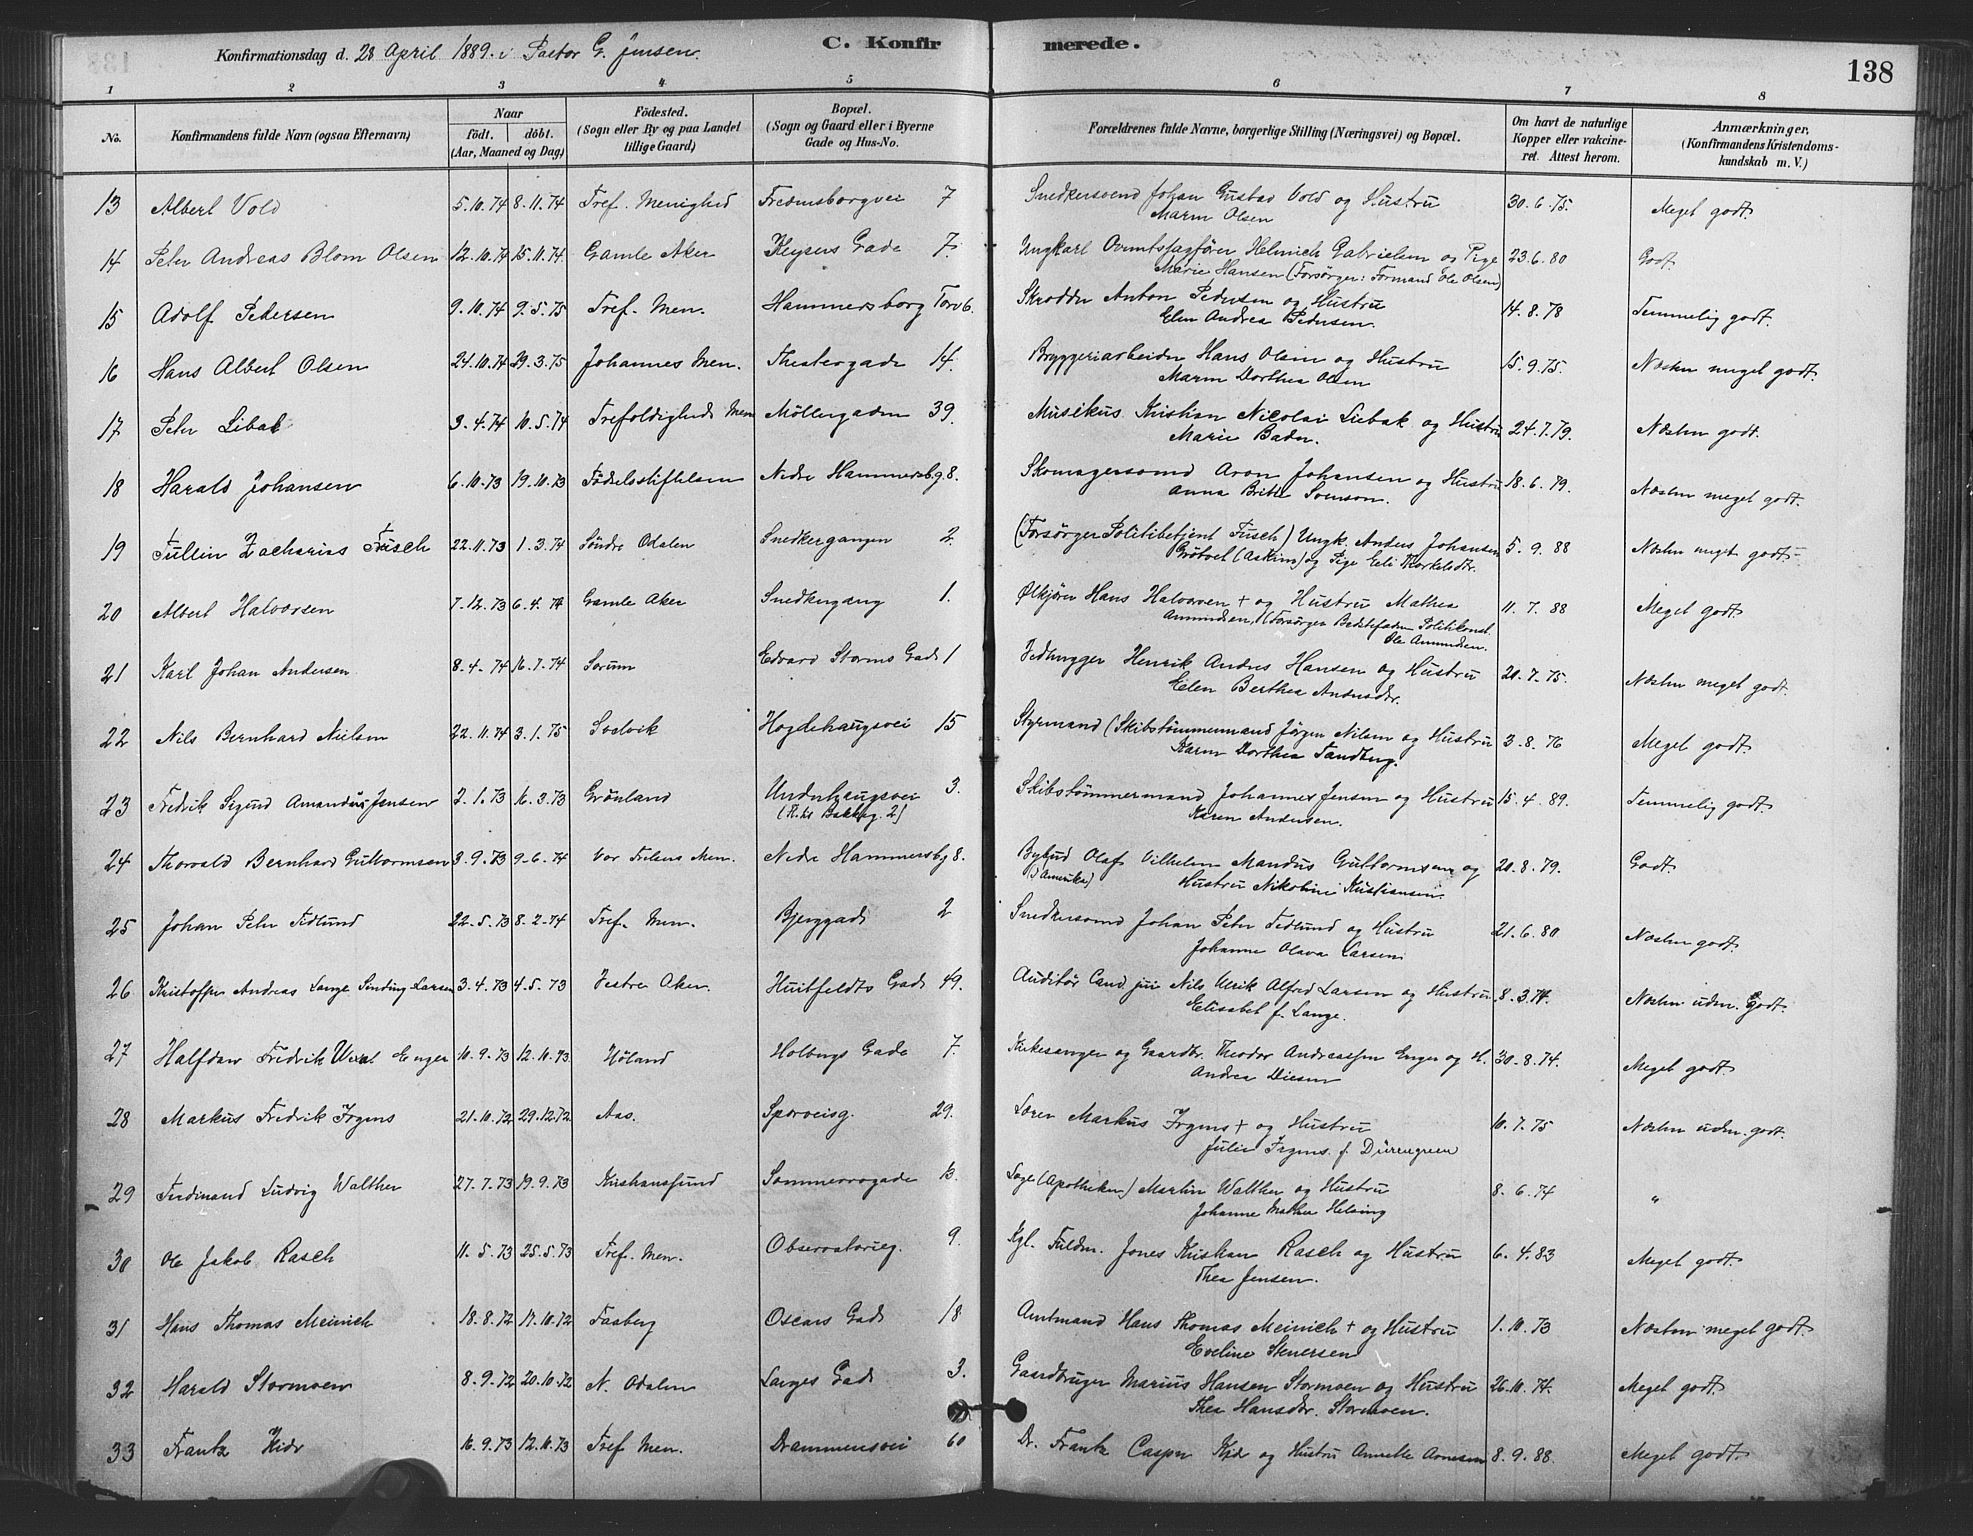 Konfirmationsdag d. 28 April 1889. i Pastor G. Jensen.
C. Konfirmerede.
138
1 2 3 4 5 6 7 8
No. Konfirmandens fulde Navn (ogsaa Efternavn) Naar födt. döbt. (Aar, Maaned og Dag) Födested. (Sogn eller By og paa Landet tillige Gaard) Bopæl. (Sogn og Gaard eller i Byerne Gade og Hus-No. Forældrenes fulde Navne, borgerlige Stilling (Næringsvei) og Bopæl. Om havt de naturlige Kopper eller vakcineret. Attest herom. Anmærkninger. (Konfirmandens Kristendomskundskab m. V.)
13 Albert Vold 5.10.74 8.11.74 Tref. Menighed Fredensborgvei 7 Snedkersvend Johan Gustav Vold og Hustru 30.6.75. Meget godt.
Maren Olsen
14 Peter Andreas Blom Olsen 12.10.74 15.11.74. Gamle Aker Keysers Gade 7. Ungkarl Helmich Gabrielsen og Pige 23.6.80 Godt.
Marie Hansen (Forsørger: Formand Ole Olsen)
15 Adolf Pedersen 9.10.74 9.5.75 Tref. Men. Hammersborg Torv 6. Skrædder Anton Pedersen og Hustru 14.8.78 Temmelig godt.
Elen Andrea Pedersen.
16 Hans Albert Olsen 24.10.74 29.3.75 Johannes Men. Theatergade 14. Bryggeriarbeider Hans Olsen og Hustru 15.9.75. Næsten meget godt.
Maren Dorthea Olsen
17 Peter Libak 3.4.74 10.5.74 Trefoldigheds Men Möllergaden 39. Musikus Kristian Nicolai Libak og Hustru 24.7.79. Næsten godt.
Marie Bader.
18 Harald Johansen 6.10.73 19.10.73 Födselsstiftelsen Nedre Hammersbg. 8. Skomagersvend Aron Johansen og Hustru 18.6.79. Næsten meget godt.
Anna Britte Svenson.
19 Tullin Zacharias Tusch 22.11.73 1.3.74 Söndre Odalen Snedkergangen 2. (Forsörger Politibetjent Tusch) Ungk. Anders Johansen 5.9.88 Næsten meget godt.
Grötvet (Askim) og Pige Eli Thorkelsdtr.
20 Albert Halvorsen 7.12.73 6.4.74 Gamle Aker Snedkergang 1. Ølkjører Hans Halvorsen † og Hustru Mathea 11.7.88 Meget godt.
Amundsen, (Forsörger Bedstefaderen Politikonst. Ole Amundsen.
21 Karl Johan Andersen 8.4.74 16.7.74 Sorum Edvard Storms Gade 1 Vedhugger Henrik Andres Hansen og Hustru 20.7.75. Næsten meget godt.
Elen Berthea Andersdtr.
22 Nils Bernhard Nielsen 22.11.74 3.1.75 Svelvik Hegdehaugsvei 15 Styrmand (Skibstømmermand Jörgen Nilsen og Hustru 3.8.76 Meget godt.
Karen Dorthea Sandberg.
23 Fredrik Sigurd Amandus Jensen 2.1.73 16.3.73 Grönland Underhaugsvei 3. Skibstömmermand Johannes Jensen og Hustru 15.4.89. Temmelig godt.
Karen Andersen.
24 Thorvald Bernhard Guttormsen 3.9.73 9.6.74 Vor Frelsers Men. Nedre Hammersbg 8. Bybud Olaf Vilhelm Mandus Guttormsen og 20.8.79. Godt.
(i Amerika) Hustru Nikoline Kristiansen.
25 Johan Peter Fedlund 22.5.73 8.2.74 Tref. Men. Bjerggade 2 Snedkersvend Johan Peter Fedlund og Hustru 21.6.80 Næsten godt.
Johanne Olava Larsen
26 Kristoffer Andreas Lange Sinding-Larsen 3.4.73 4.5.73 Vestre Aker. Huitfeldts Gade 49. Auditør Cand. jur Nils Ulrik Alfred Larsen og Hustru 8.3.74. Næsten udm. Godt.
Elisabet f. Lange.
27 Halfdan Fredrik Enger 10.9.73 12.10.73 Höland Holbergs Gade 7. Kirkesanger og Gaardbr. Theodor Andreassen Enger og H. 30.8.74. Meget godt.
Andrea Diesen
28 Markus Fredrik Irgens 21.10.72 29.12.72 Aas. Sporveisg. 29. Lærer Markus Irgens † og Hustru 10.7.75 Næsten udm. godt.
Julie Irgens f. Dürengreen
29 Ferdinand Ludvig Walther 27.7.73 19.9.73 Kristiansund Sommerrogade 13. Læge (Apotheker) Martin Walther og Hustru 8.6.74 "
Johanne Mathea Helsing
30 Ole Jakob Rasch 11.5.73 25.5.73 Tref. Men. Observatorieg. 9. Kgl. Fuldm. Jones Kristian Rasch og Hustru 6.4.83 Meget godt.
Thea Jensen.
31 Hans Thomas Meinich 18.8.72 17.10.72 Faaberg Oscars Gade 18 Amtmand Hans Thomas Meinich † og Hustru 1.10.73 Næsten meget godt.
Eveline Stenersen
32 Harald Stormoen 8.9.72 20.10.72 N. Odalen Langes Gade 3. Gaardbruger Marius Hansen Stormoen og Hustru 26.10.74. Meget godt.
Thea Hansdtr. Stormoen.
33 Frantz Kiær 16.9.73 12.10.73 Tref Men. Drammensvei 60 Dr. Frantz Casper Kiær og Hustru Annette Arnesen 8.9.88. Meget godt.